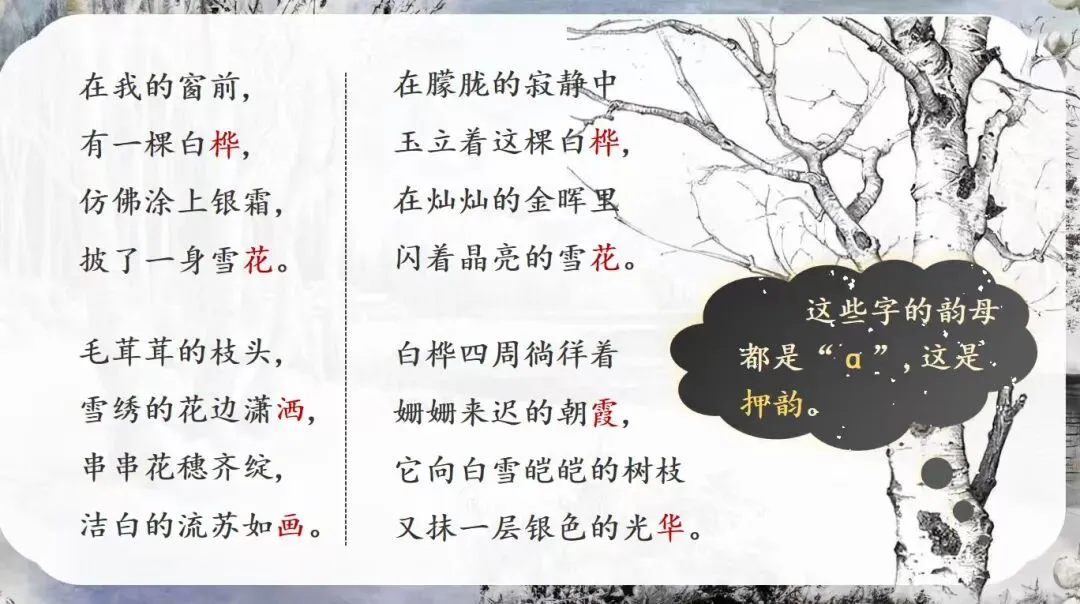 在我的窗前，
有一棵白桦，
仿佛涂上银霜，
披了一身雪花。
毛茸茸的枝头，
雪绣的花边潇洒，
串串花穗齐绽，
洁白的流苏如画。
在朦胧的寂静中
玉立着这棵白桦，
在灿灿的金晖里
闪着晶亮的雪花。
白桦四周徜徉着
姗姗来迟的朝霞，
它向白雪皑皑的树枝
又抹一层银色的光华。
这些字的韵母
都是“ɑ”，这是
押韵。